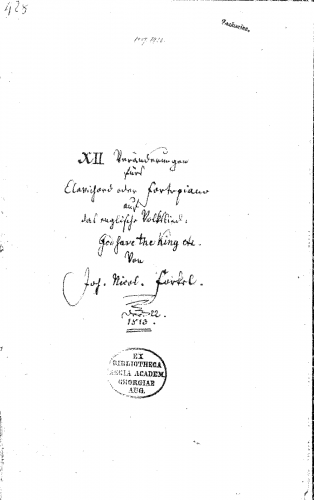 425
XII Veränderungen
fürs
Clavichord oder Fortepiano
auf
das englische Volkslied:
God save the King etc.
Von
Joh. Nicol. Forkel.
Dec. 22.
1813.
EX
BIBLIOTHECA
REGIA ACADEM.
GEORGIAE
AUG.